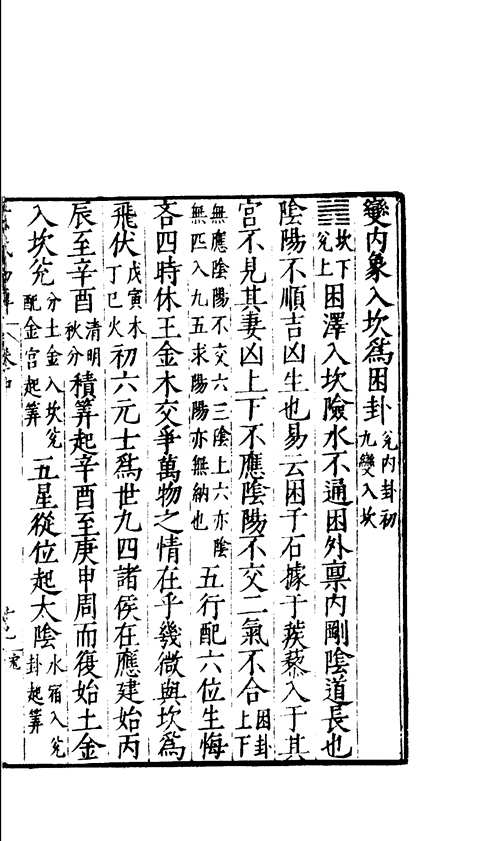 變内象入坎爲困卦兌内卦初九變入坎
䷮坎下兌上困澤入坎險水不通困外禀内剛陰道長也
陰陽不順吉凶生也易云困于石據于蒺藜入于其
宮不見其妻凶上下不應陰陽不交二氣不合困卦上下
無應陰陽不交六三陰上六亦陰無匹入九五求陽陽亦無納也五行配六位生悔
吝四時休王金木交爭萬物之情在乎幾微與坎爲
飛伏戊寅木丁巳火初六元士爲世九四諸侯在應建始丙
辰至辛酉清明秋分積筭起辛酉至庚申周而復始土金
入坎兌分土金入坎兌配金宮起筭五星從位起太陰水宿入兌卦起筭